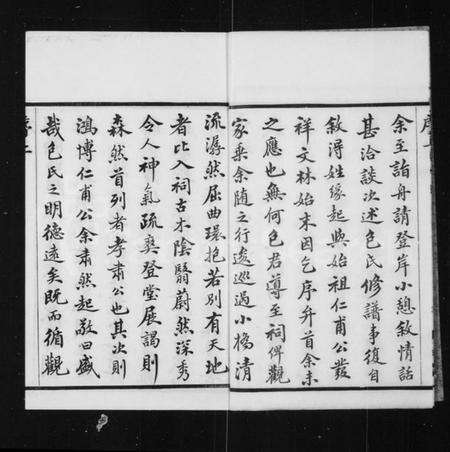 余至詣舟請登岸小憩敘情話
甚洽談次述包氏修譜事復自
敘得姓緣起與始祖仁甫公發
祥文林始末因乞序弁首余未
之應也無何包君導至祠俾觀
家乘余隨之行逡巡過小橋清
流潺然屈曲環抱若別有天地
者比入祠古木陰翳蔚然深秀
令人神氣疏爽登堂展謁則
森然首列者孝肅公也其次則
鴻博仁甫公余肅然起敬曰盛
哉包氏之明德遠矣既而循觀